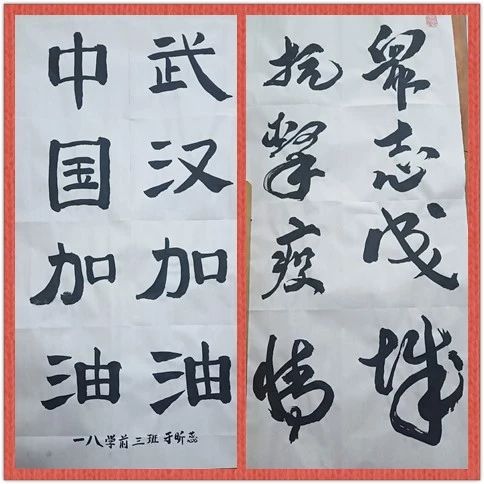 武汉加油
中国加油
一八学前三班于昕蕊
眾志成城
抗擊疫情